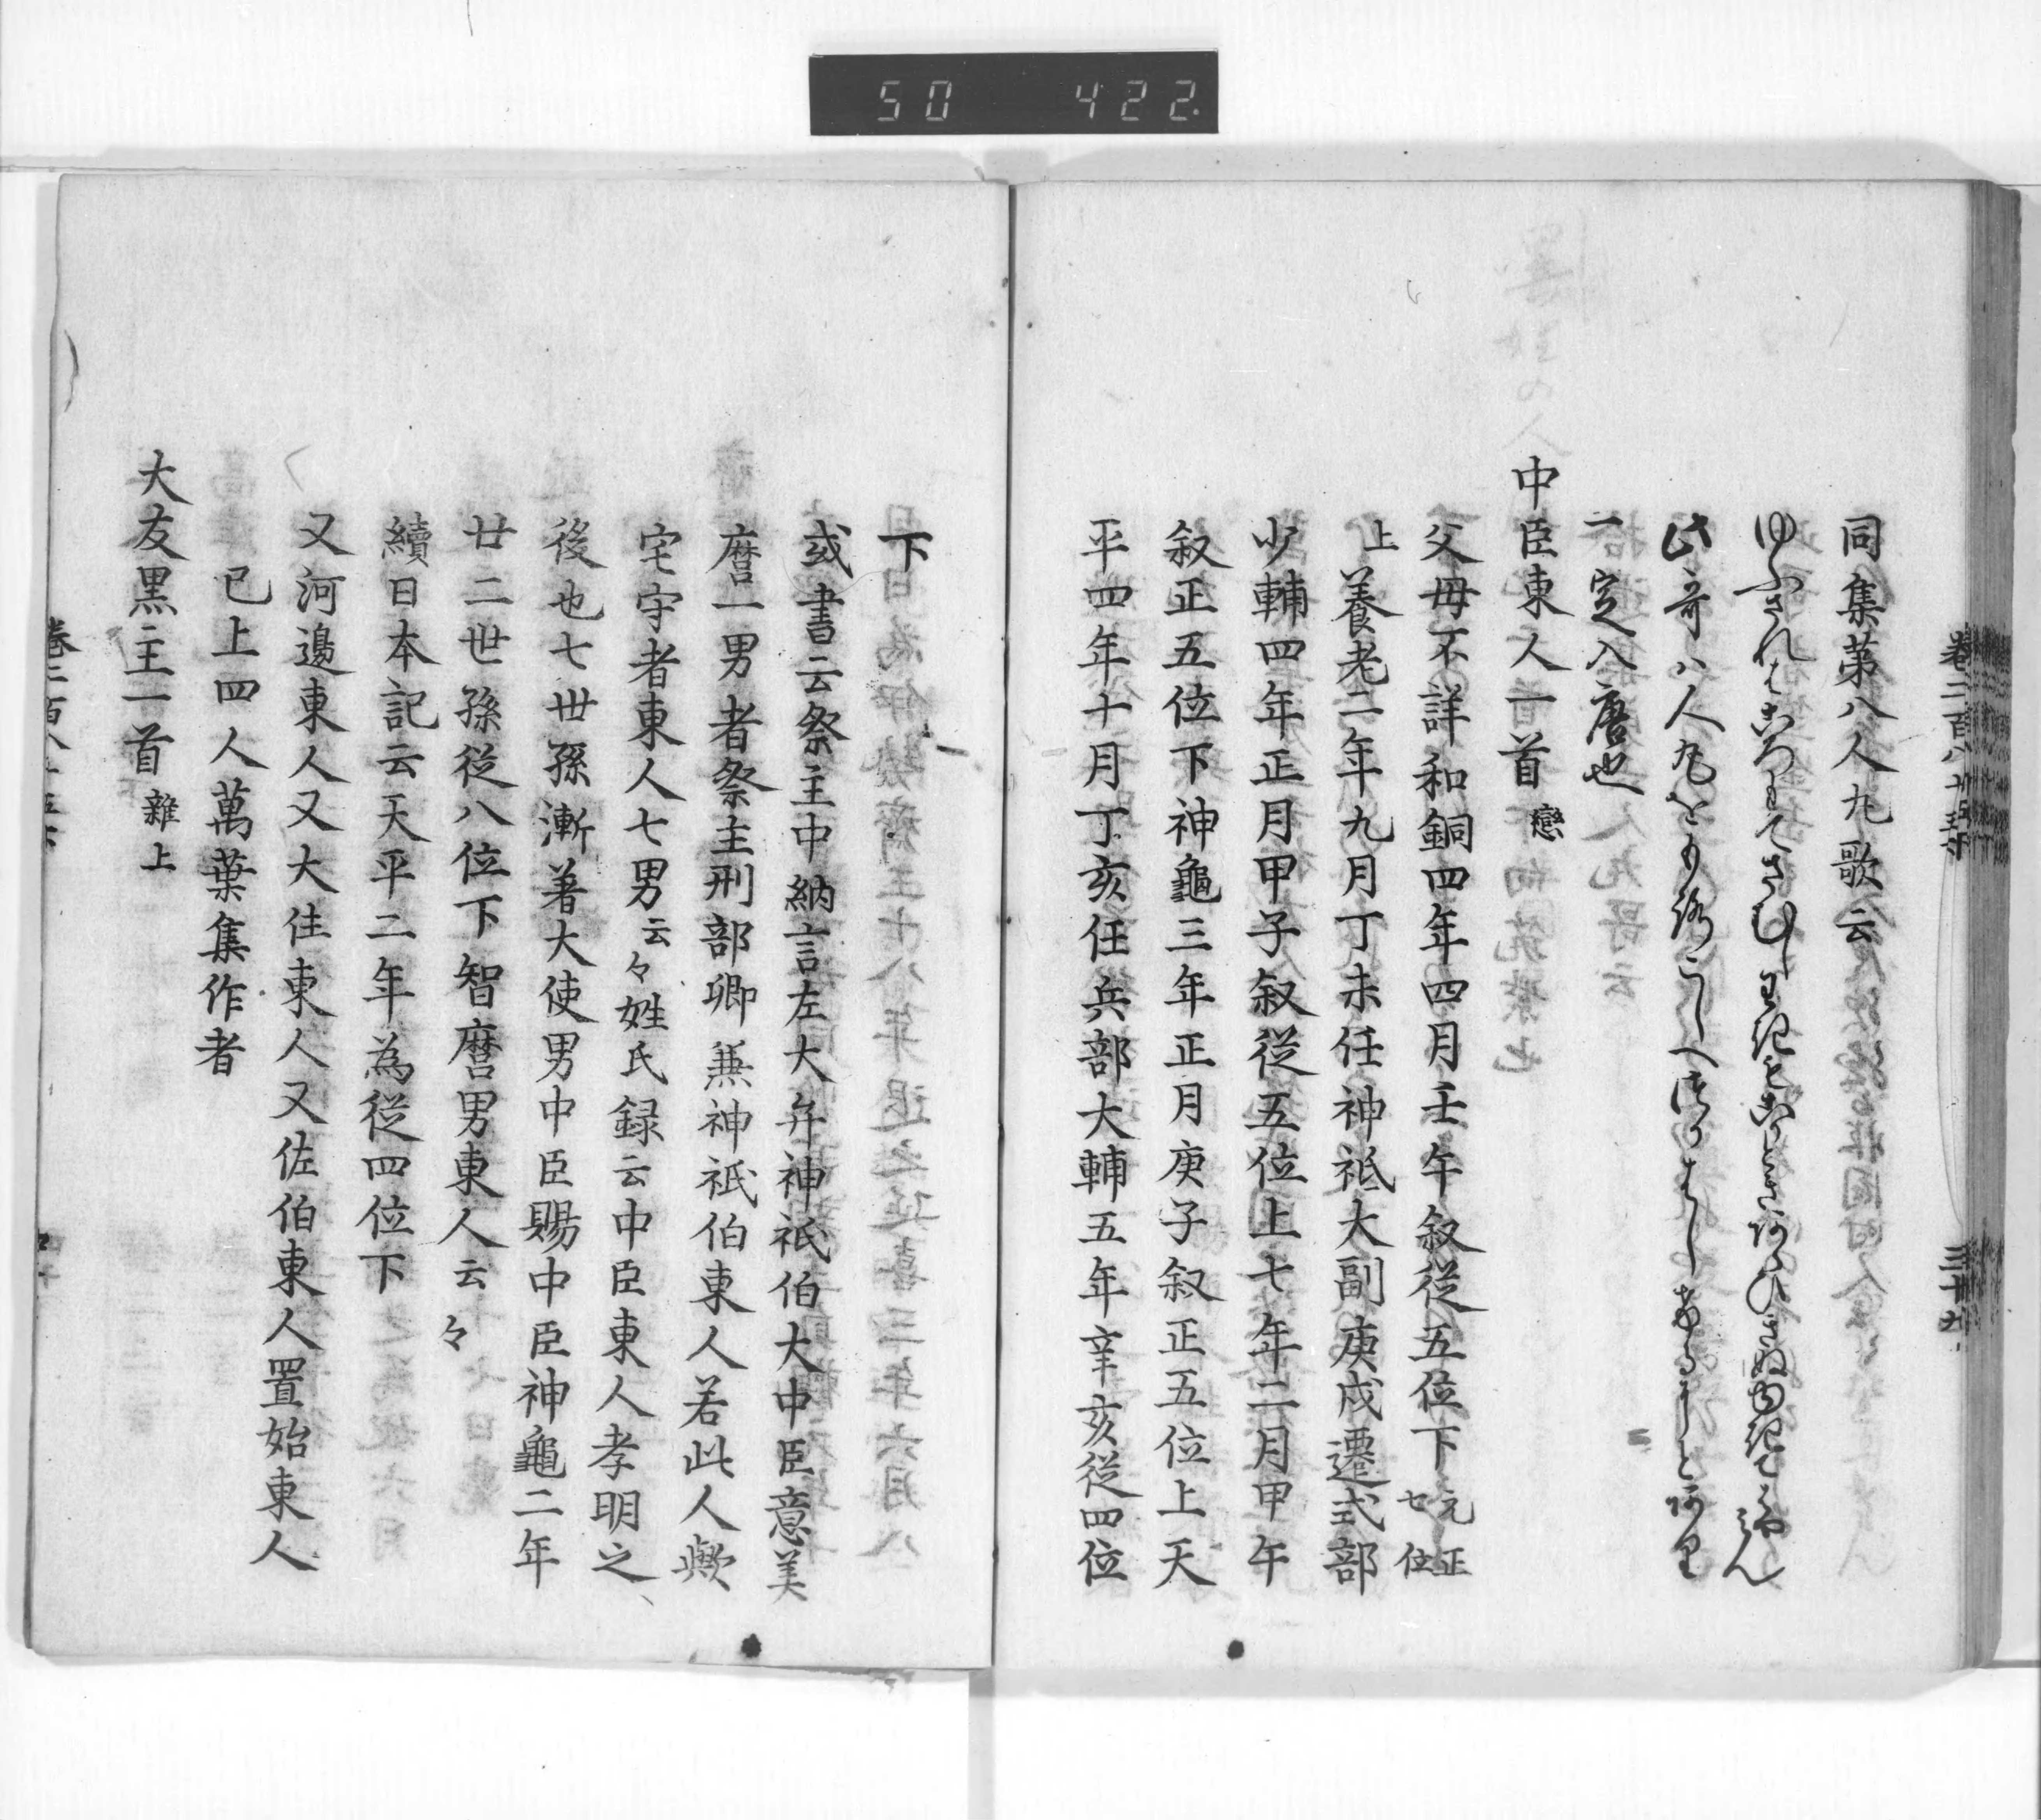 50 422.
巻二百八十五
三十九
同集第八人丸歌云
ゆふされはころもてさむしわきもこかときあらひきぬゆきてはやきん
此哥ハ人丸をもろこしへつかはしけるによとあり
一定入唐也
中臣東人一首 戀
父母不詳和銅四年四月壬午叙從五位下 元正七位
上養老二年九月丁未任神祗大副庚戌遷式部
少輔四年正月甲子叙從五位上七年二月甲午
叙正五位下神龜三年正月庚子叙正五位上天
平四年十月丁亥任兵部大輔五年辛亥從四位
下
或書云祭主中納言左大弁神祇伯大中臣意美
麿一男者祭主刑部卿兼神祇伯東人若此人歟
宅守者東人七男云々姓氏録云中臣東人孝明之
後也七世孫漸著大使男中臣賜中臣神龜二年
廿二世孫從八位下智麿男東人云々
續日本記云天平二年為從四位下
又河邊東人又大佳東人又佐伯東人置始東人
已上四人萬葉集作者
大友黒主一首 雜上